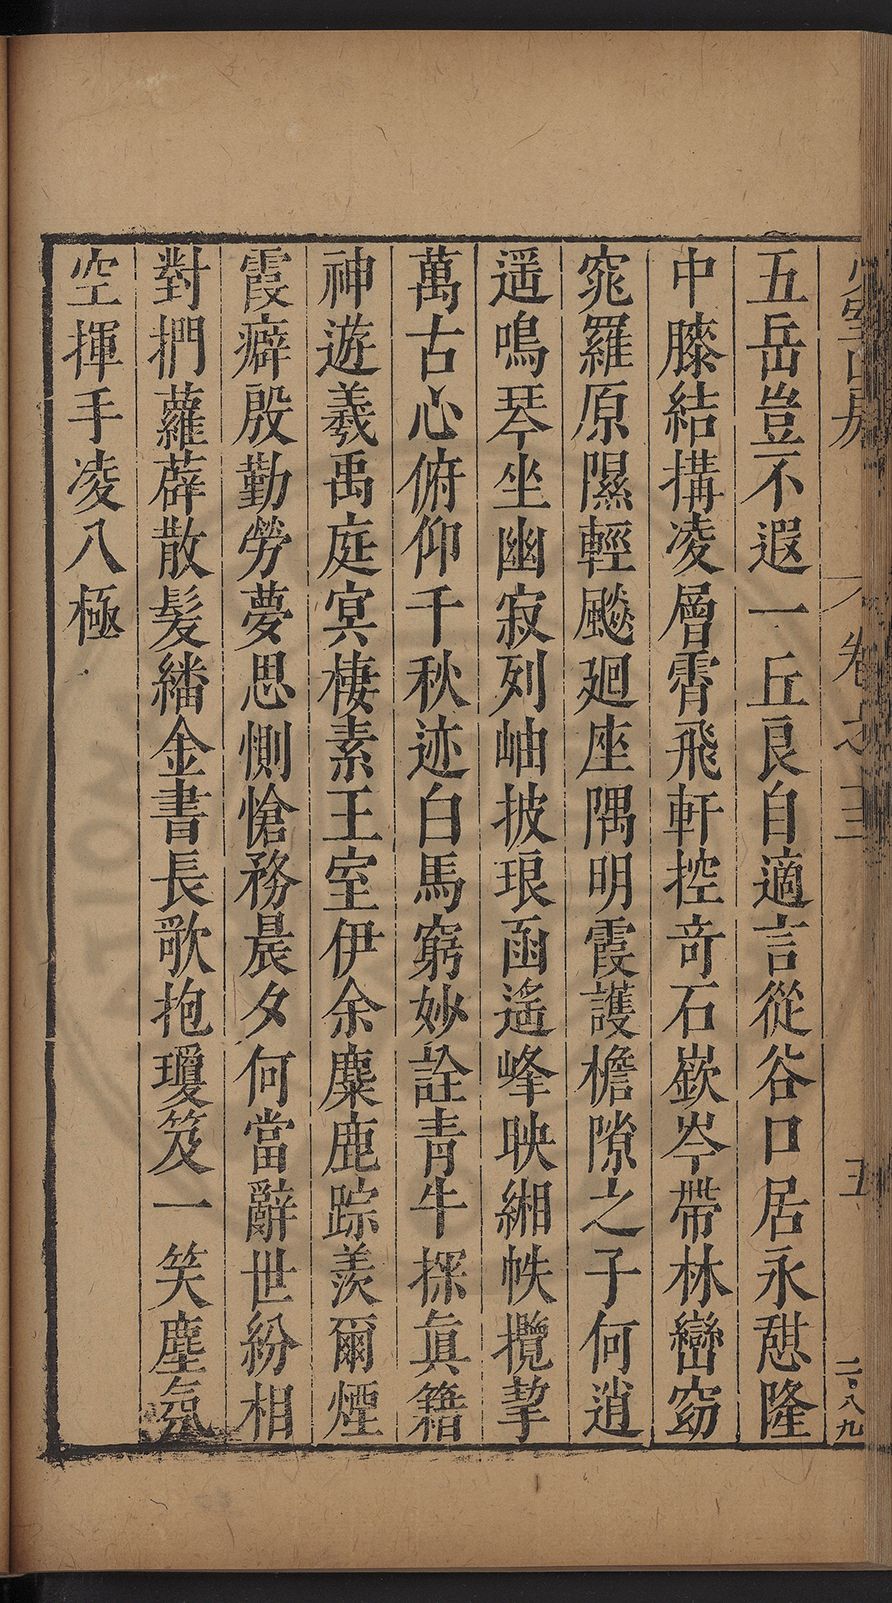 五岳豈不遐一丘良自適言從谷口居永憇隆
中膝結搆凌層霄飛軒控奇石嶔岑帶林巒窈
窕羅原隰輕颷廻座隅明霞護檐隙之子何逍
遥鳴琴坐幽寂列岫披琅函遙峰映緗帙攬挈
萬古心俯仰千秋迹白馬窮妙詮青牛探眞籍
神遊羲禹庭冥棲素王室伊余麋鹿踪羨爾煙
霞癖殷勤勞夢思惻愴務晨夕何當辭世紛相
對捫蘿薜散髮繙金書長歌抱瓊笈一笑塵氛
空揮手凌八極
卷之三
五
二·八九